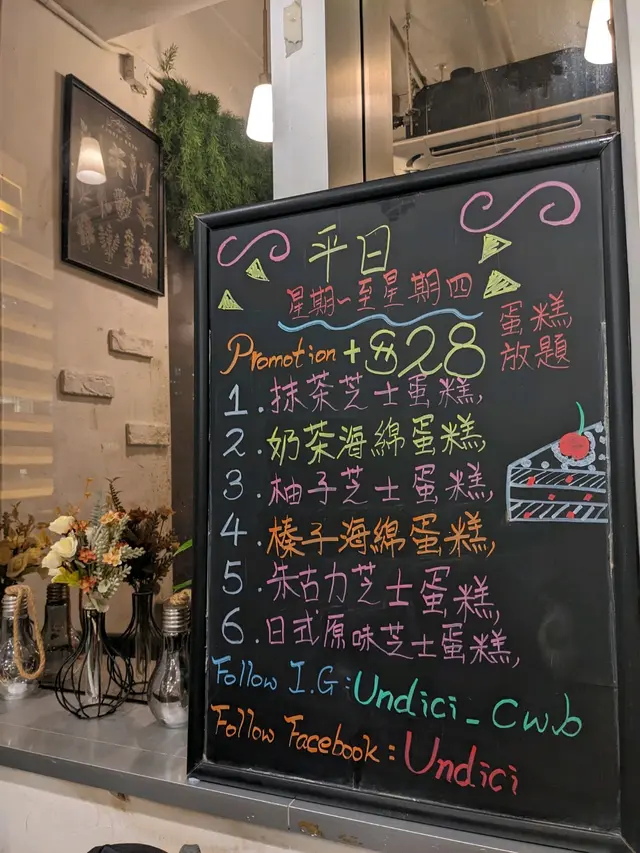 平日
星期一至星期四
Promotion +$28 蛋糕放題
1. 抹茶芝士蛋糕,
2. 奶茶海綿蛋糕,
3. 柚子芝士蛋糕,
4. 榛子海綿蛋糕,
5. 朱古力芝士蛋糕,
6. 日式原味芝士蛋糕,
Follow I.G : Undici_cwb
Follow Facebook : Undici